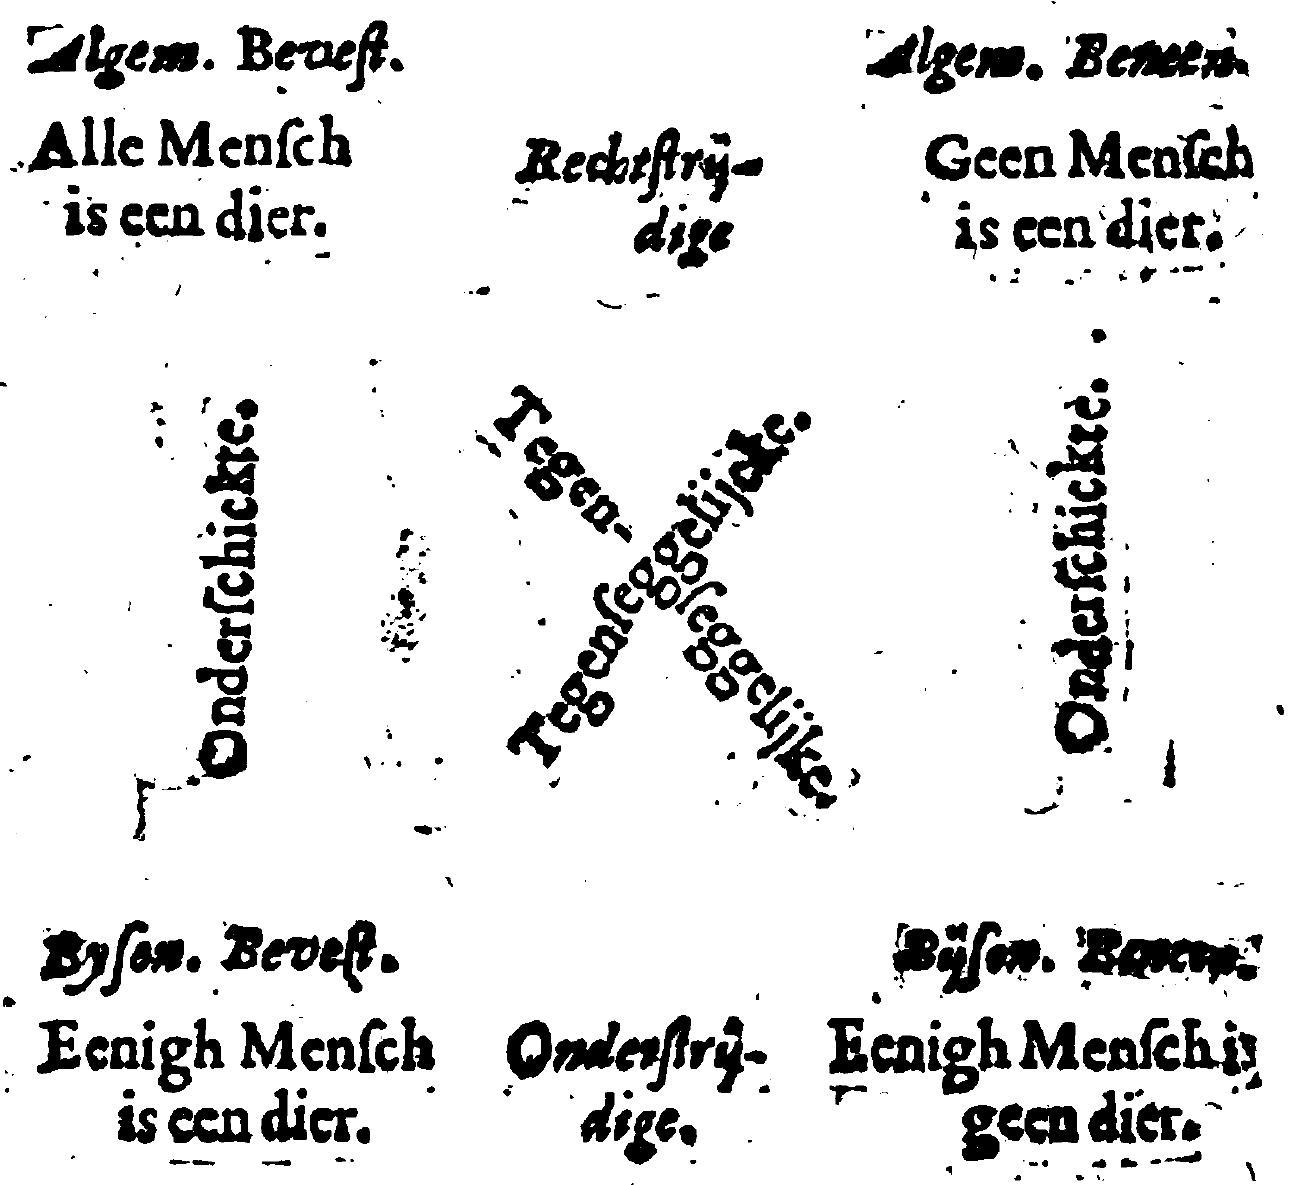 Algem. Beveſt.
Alle Menſch
is een dier.
Rechtſtrij-
dige
Algem. Beneen.
Geen Menſch
is een dier.
Onderſchickte.
Tegen-
ſeggelijke.
Tegenſeggelijcke.
Onderſchickte.
Byſon. Beveſt.
Eenigh Menſch
is een dier.
Onderſtrij-
dige.
Bijſon.
Eenigh Menſch is
geen dier.